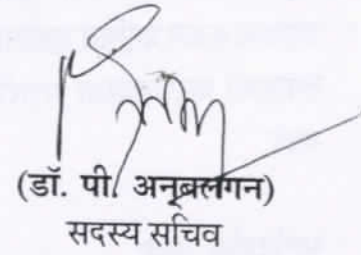 (डॉ. पी. अनूबलगन)
सदस्य सचिव